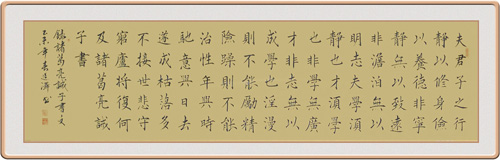 夫君子之行
靜以修身儉
以養德非寧
靜無以致遠
非澹泊無以
明志夫學須
靜也才須學
也非學無廣
才非志無以
成學也淫漫
則不能勵精
險躁則不能
治性年與時
馳意與日去
遂成枯落多
不接世悲守
窮廬將復何
及諸葛亮誡
子書
錄諸葛亮誡子書文
乙未年